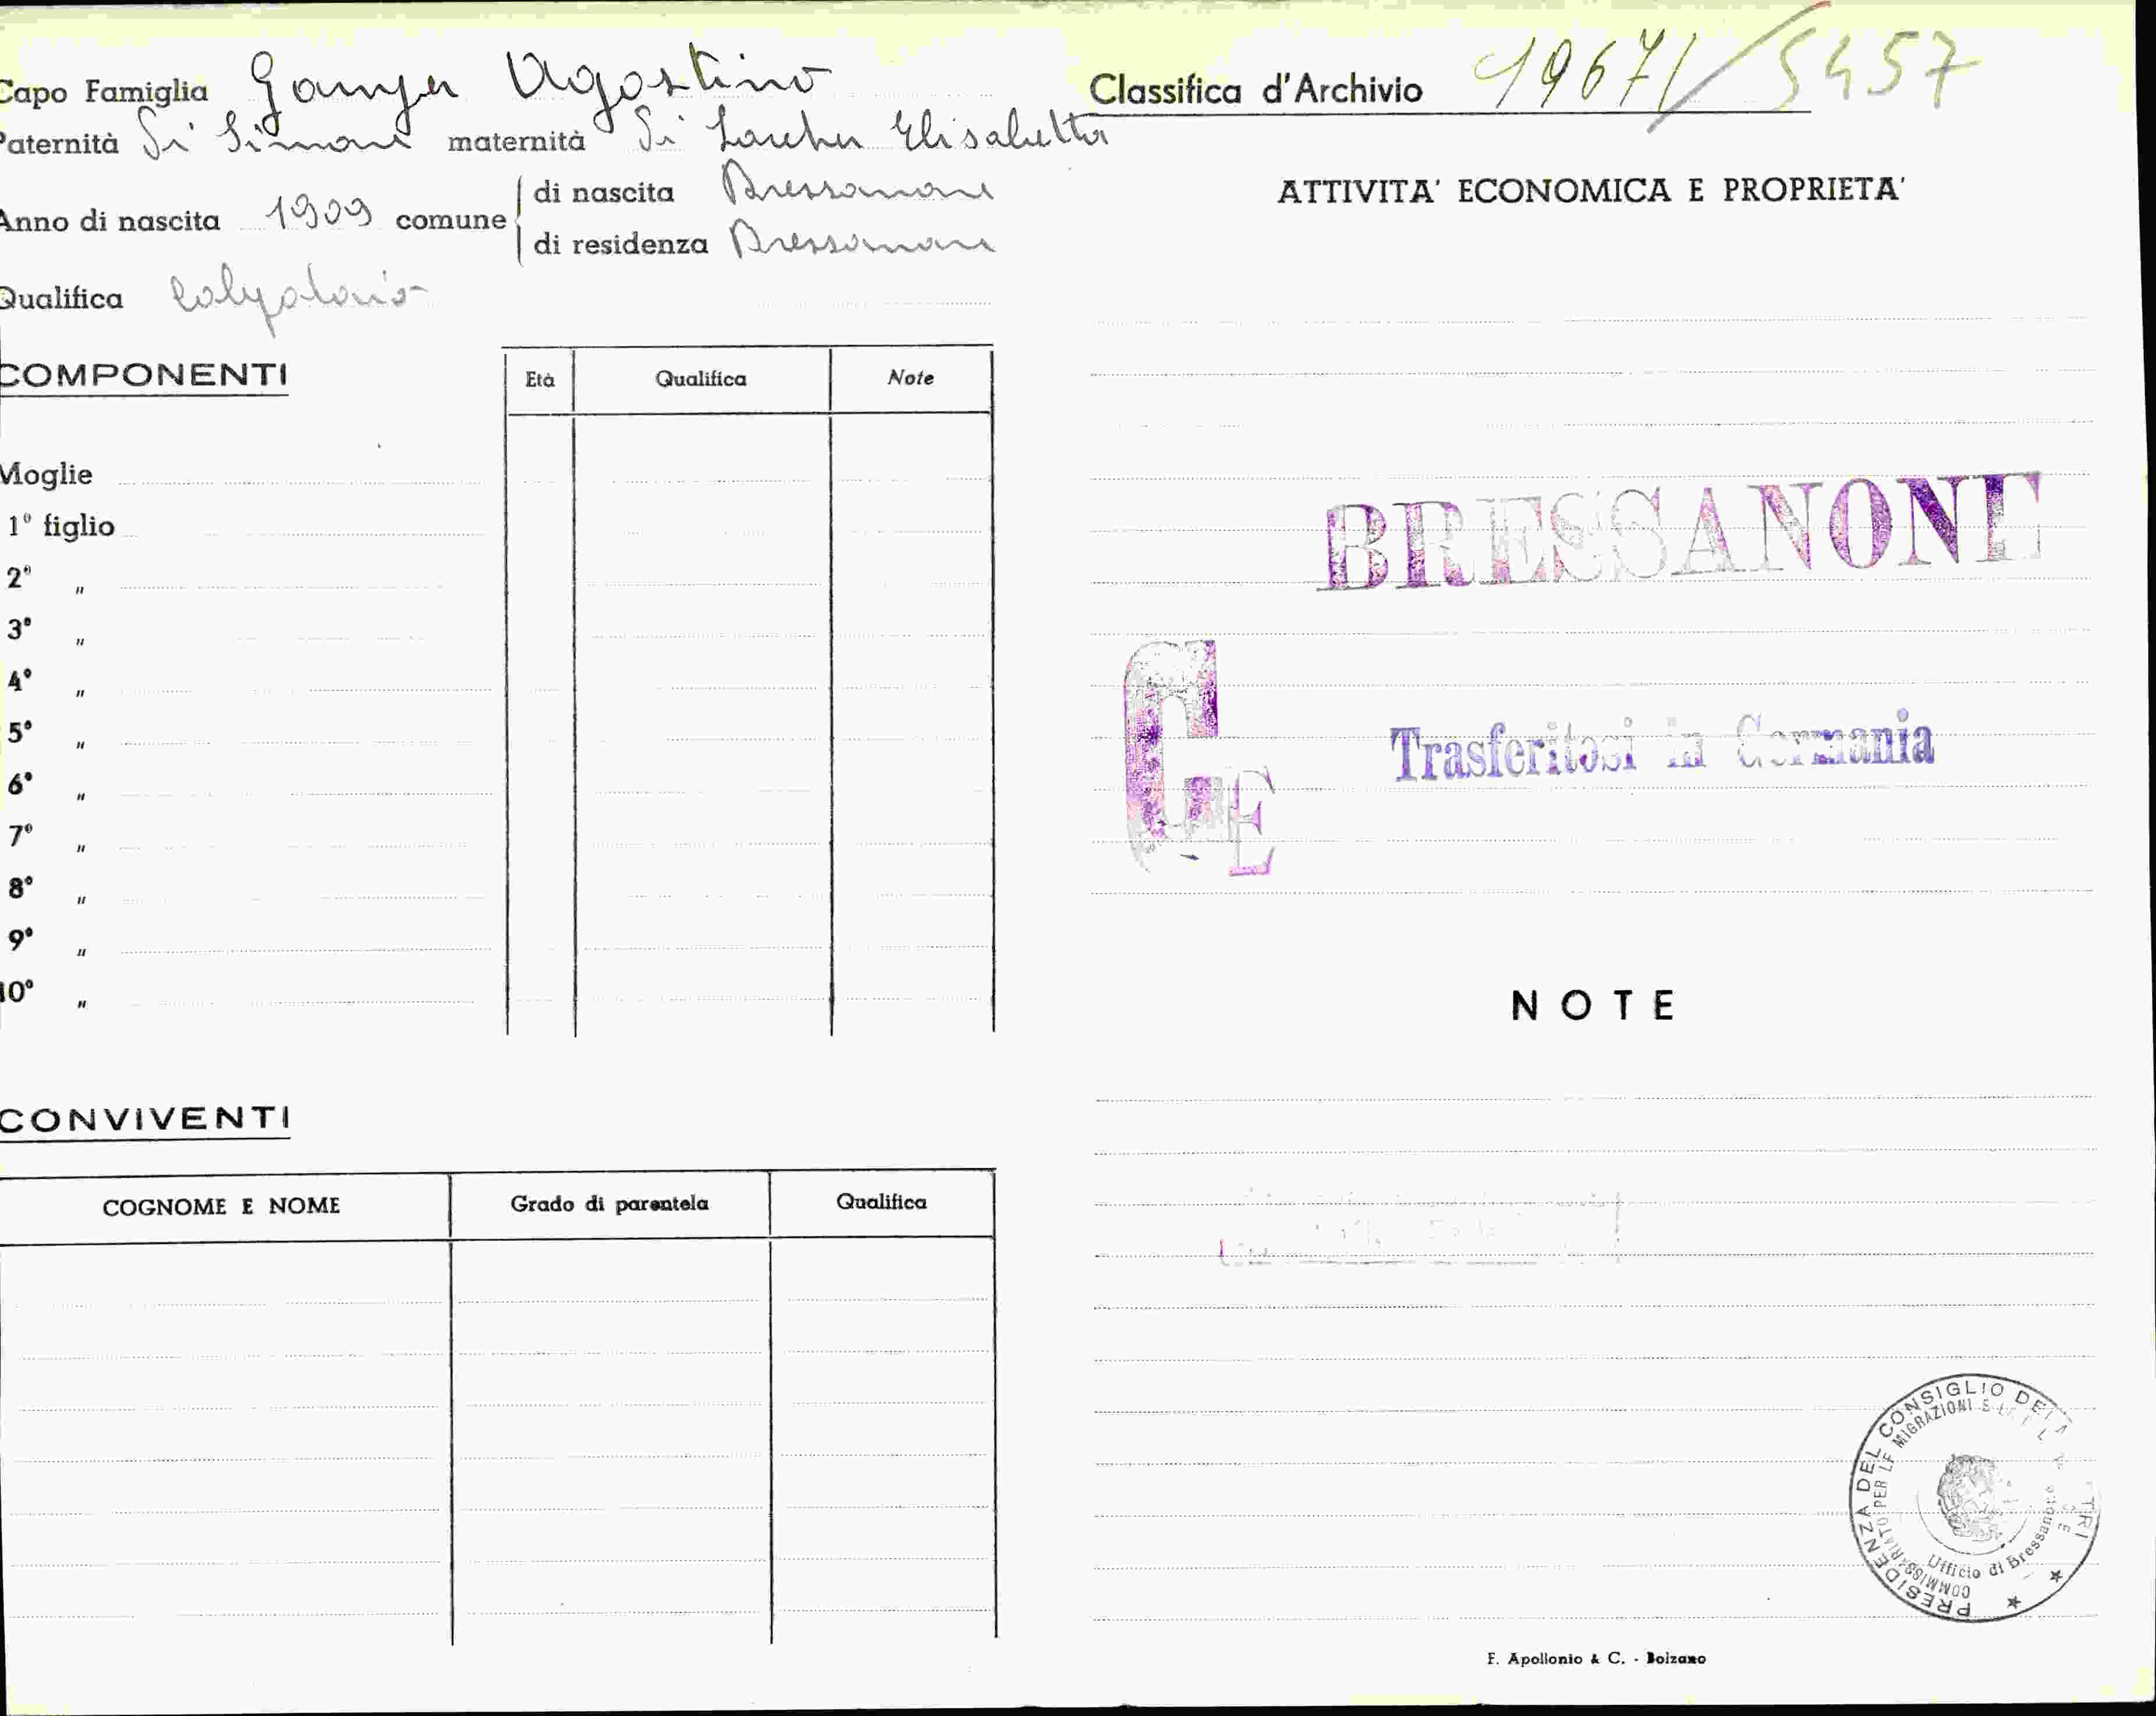 Capo Famiglia Ganger Agostino
Paternità di Simone maternità di Larcher Elisabetta
Anno di nascita 1909 comune
di nascita Bressanone
di residenza Bressanone
Qualifica calzolaio
COMPONENTI
Età Qualifica Note
Moglie
1° figlio
2° "
3° "
4° "
5° "
6° "
7° "
8° "
9° "
10° "
CONVIVENTI
COGNOME E NOME Grado di parentela Qualifica
Classifica d'Archivio 19671/5457
ATTIVITA' ECONOMICA E PROPRIETA'
BRESSANONE
GE
Trasferitosi in Germania
NOTE
PRESIDENZA DEL CONSIGLIO DEI
COMMISSARIATO PER LE MIGRAZIONI E
Ufficio di Bressanone
F. Apollonio & C. - Bolzano